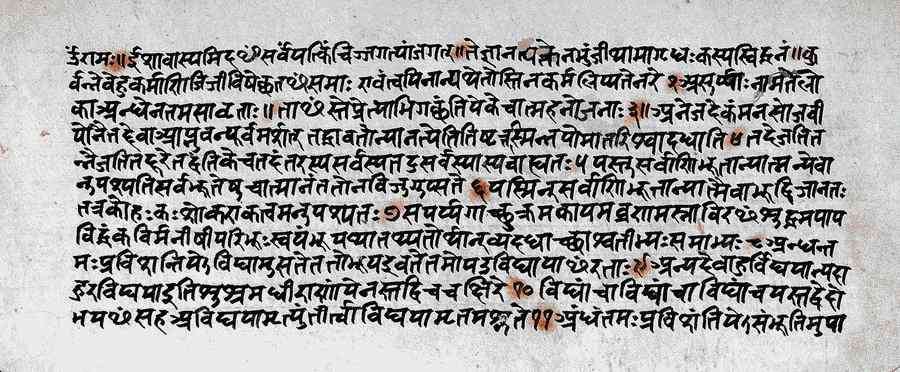 ॐरामः॥ईशावास्यमिदꣳसर्वंयत्किंचिज्जगत्यांजगत्॥तेनत्यक्तेनभुंजीथामागृधःकस्यस्विद्धनं॥कु
र्वन्नेवेहकर्माणिजिजीविषेछतꣳसमाः एवंत्वयिनान्यथेतोस्तिनकर्मलिप्यतेनरे २असुर्य्याःनामतेलो
काअन्धेनतमसावृताः॥ताꣳस्तेप्रेत्याभिगछंतियेकेचात्महनोजनाः३॥अनेजदेकंमनसोजवी
योनैनद्देवाआप्नुवन्पूर्वमर्शत् तद्धावतोन्यानत्येतितिष्टत्तस्मिन्नपोमातरिश्वादधाति ४तदेजतित
न्नैजतितद्दूरेतद्वंतिकेचतदंतरस्यसर्वस्यतदुसर्वस्यास्यबाह्यतः५यस्तुसर्वाणिभूतान्यात्मन्येवा
नुपश्यतिसर्वभूतेषुचात्मानंततोनविजुगुप्सते ६यस्मिन्सर्वाणिभूतान्यात्मैवाभूद्विजानतः
तत्रकोमोहःकःशोकएकत्वमनुपश्यतः७सपर्य्यगाच्छुक्रमकायमव्रणमस्नाविरꣳशुद्धमपाप
विद्धंकविर्मनीषीपरिभूःस्वयंभूर्याथातथ्यतोर्थान्व्यदधाच्छाश्वतीभ्यःसमाभ्यः ८अन्धन्त
मःप्रविशन्तियेऽविद्यामुपासतेततोभूयइवतेतमोयउविद्यायाꣳरताः९अन्यदेवाहुर्विद्ययान्यदा
हुरविद्ययाइतिशुश्रुमधीराणांयेनस्तद्विचचक्षिरे १०विद्यांचाविद्यांचाविद्यांचयस्तद्वेदो
भयꣳसहअविद्ययामृत्युंतीर्त्वाविद्ययामृतमश्नुते११अंधंतमःप्रविशंतियेऽसंभूतिमुपा